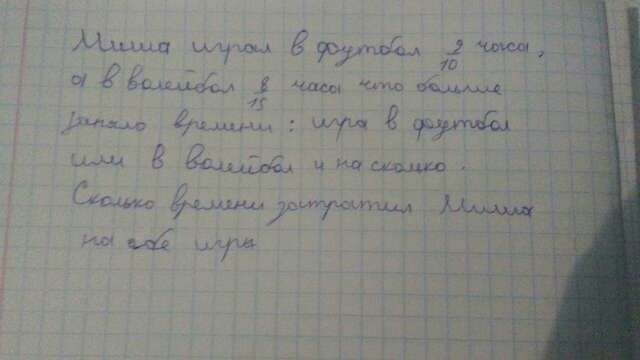 Миша играл в футбол 9/10 часа,
а в волейбол 8/15 часа что больше
заняло времени: игра в футбол
или в волейбол и на сколько.
Сколько времени затратил Миша
на обе игры